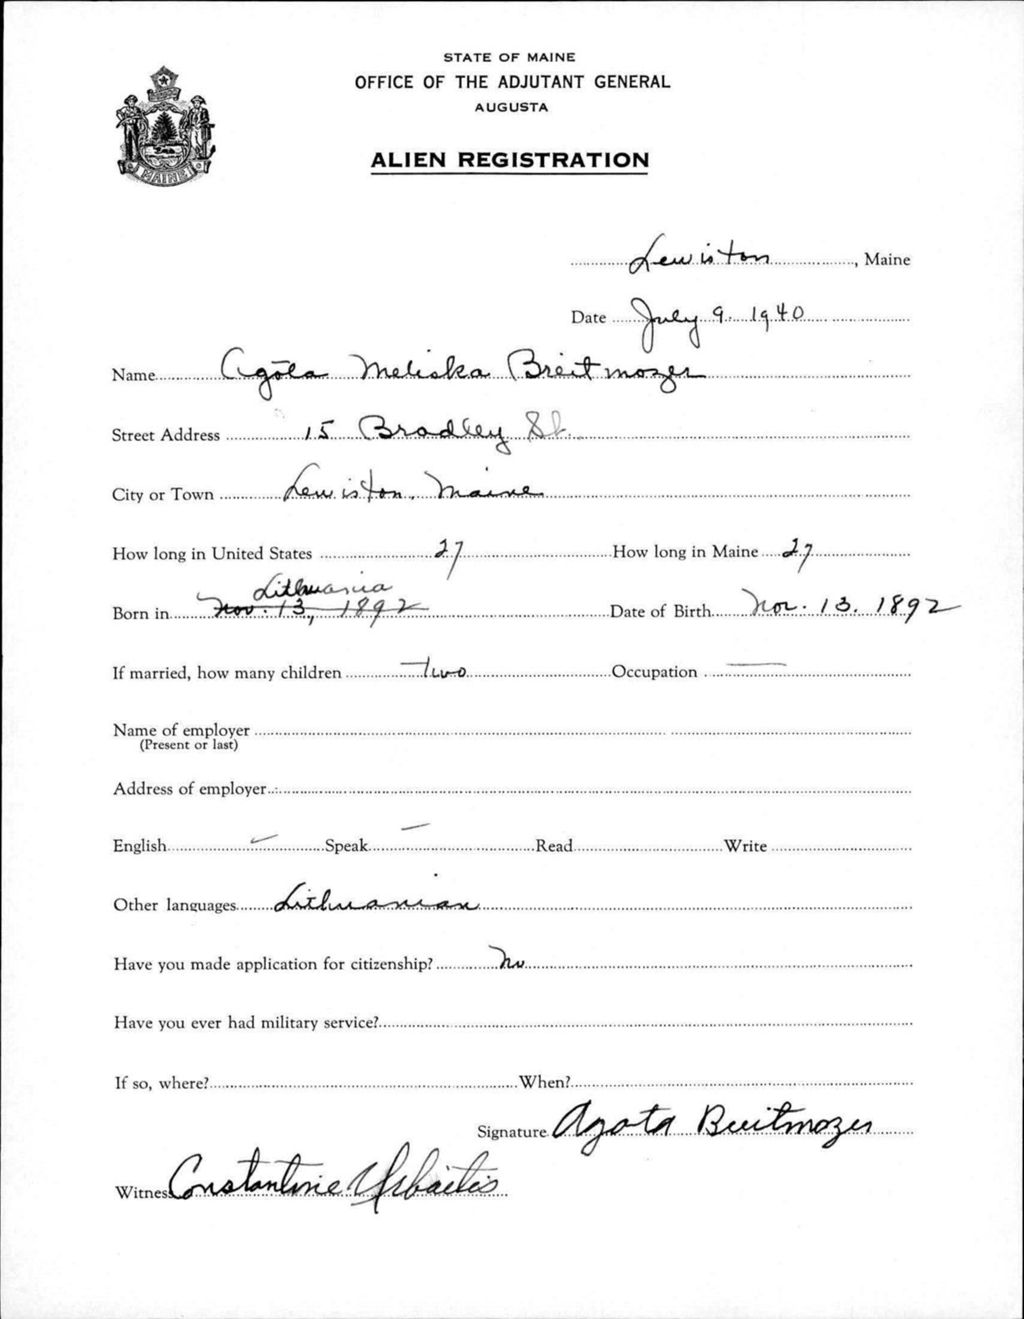 STATE OF MAINE
OFFICE OF THE ADJUTANT GENERAL
AUGUSTA
ALIEN REGISTRATION
MAINE
Lewiston, Maine
Date July 9. 1940
Name Agota Meliska Breitmozer
Street Address 15 Bradley St.
City or Town Lewiston, Maine
How long in United States 27 How long in Maine 27
Lithuania
Born in Nov. 13, 1892 Date of Birth Nov. 13. 1892
If married, how many children Two Occupation —
Name of employer
(Present or last)
Address of employer
English Speak Read Write
Other languages Lithuanian
Have you made application for citizenship? No
Have you ever had military service?
If so, where? When?
Signature Agota Breitmozer
Witness Constantine Urbaitis